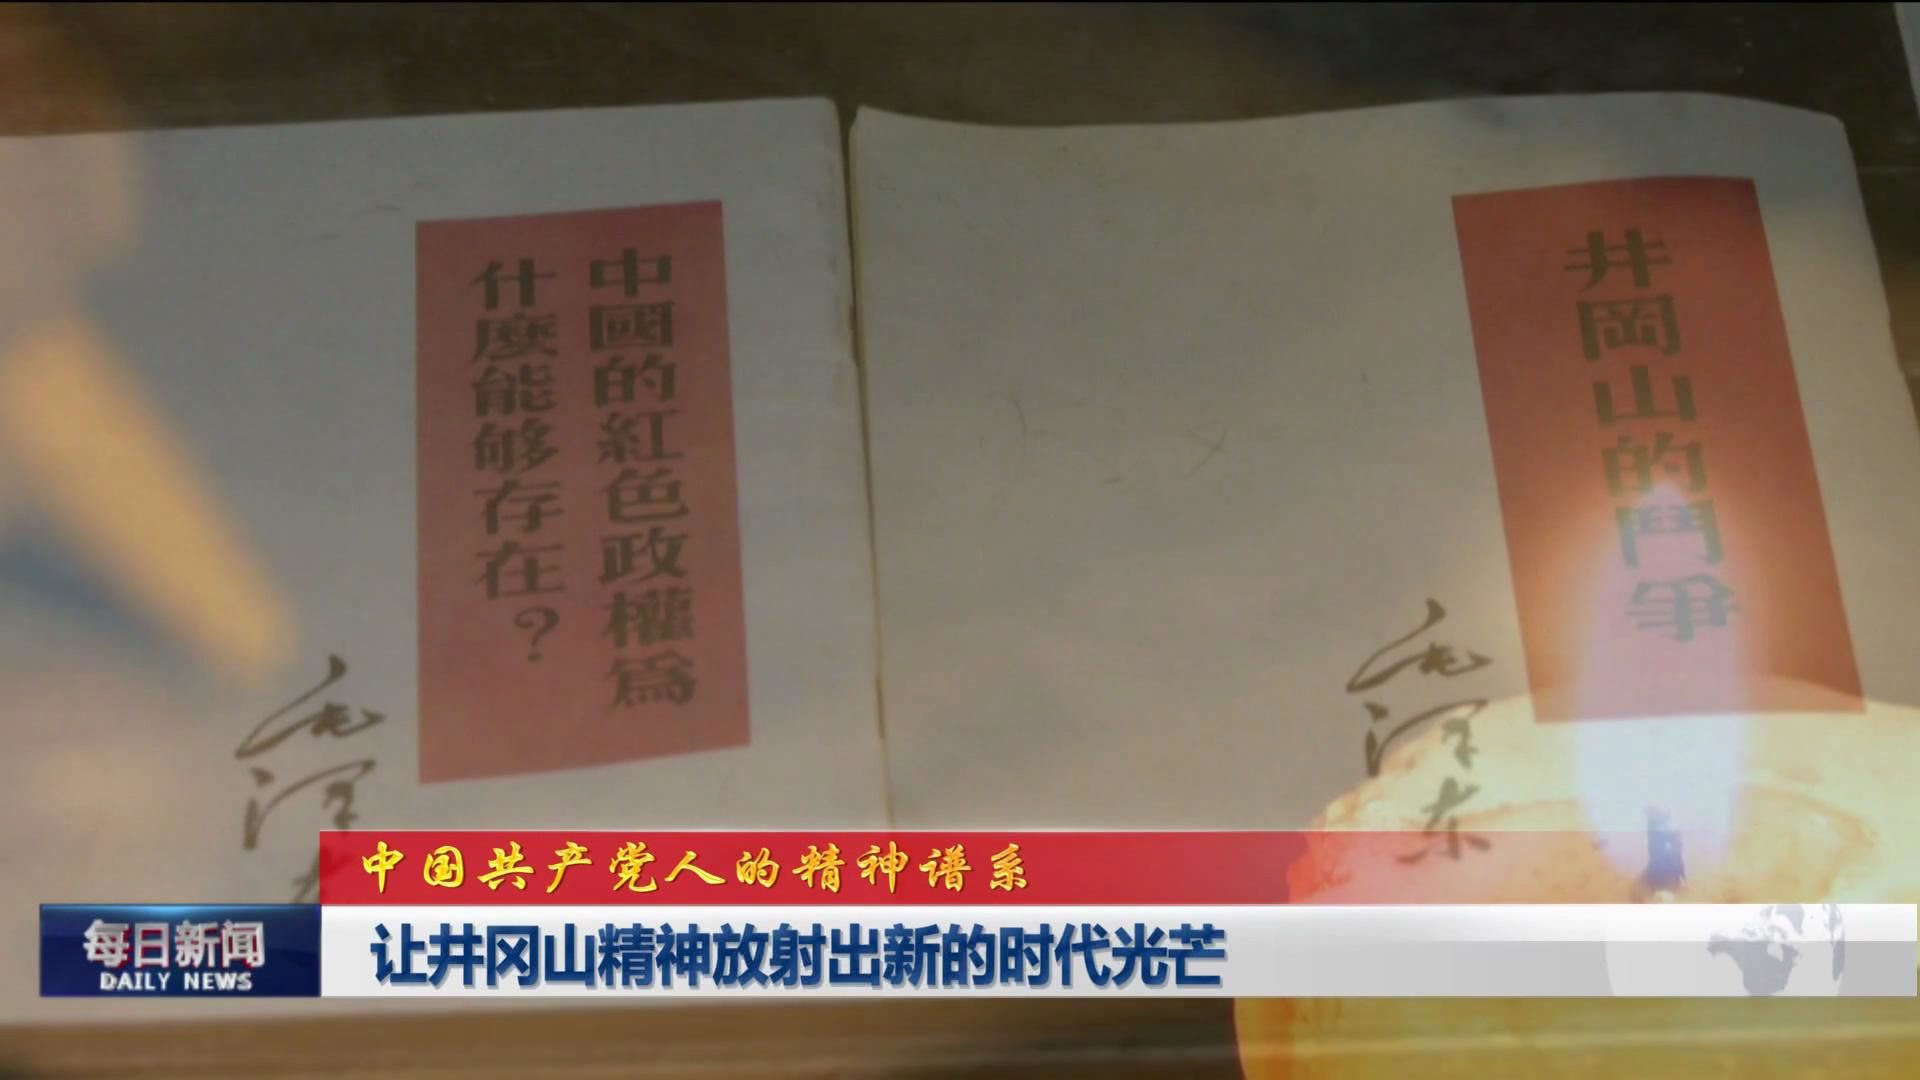 中國的紅色政權爲
什麽能够存在？
毛泽
井岡山的鬥爭
毛泽东
中国共产党人的精神谱系
每日新闻
DAILY NEWS
让井冈山精神放射出新的时代光芒